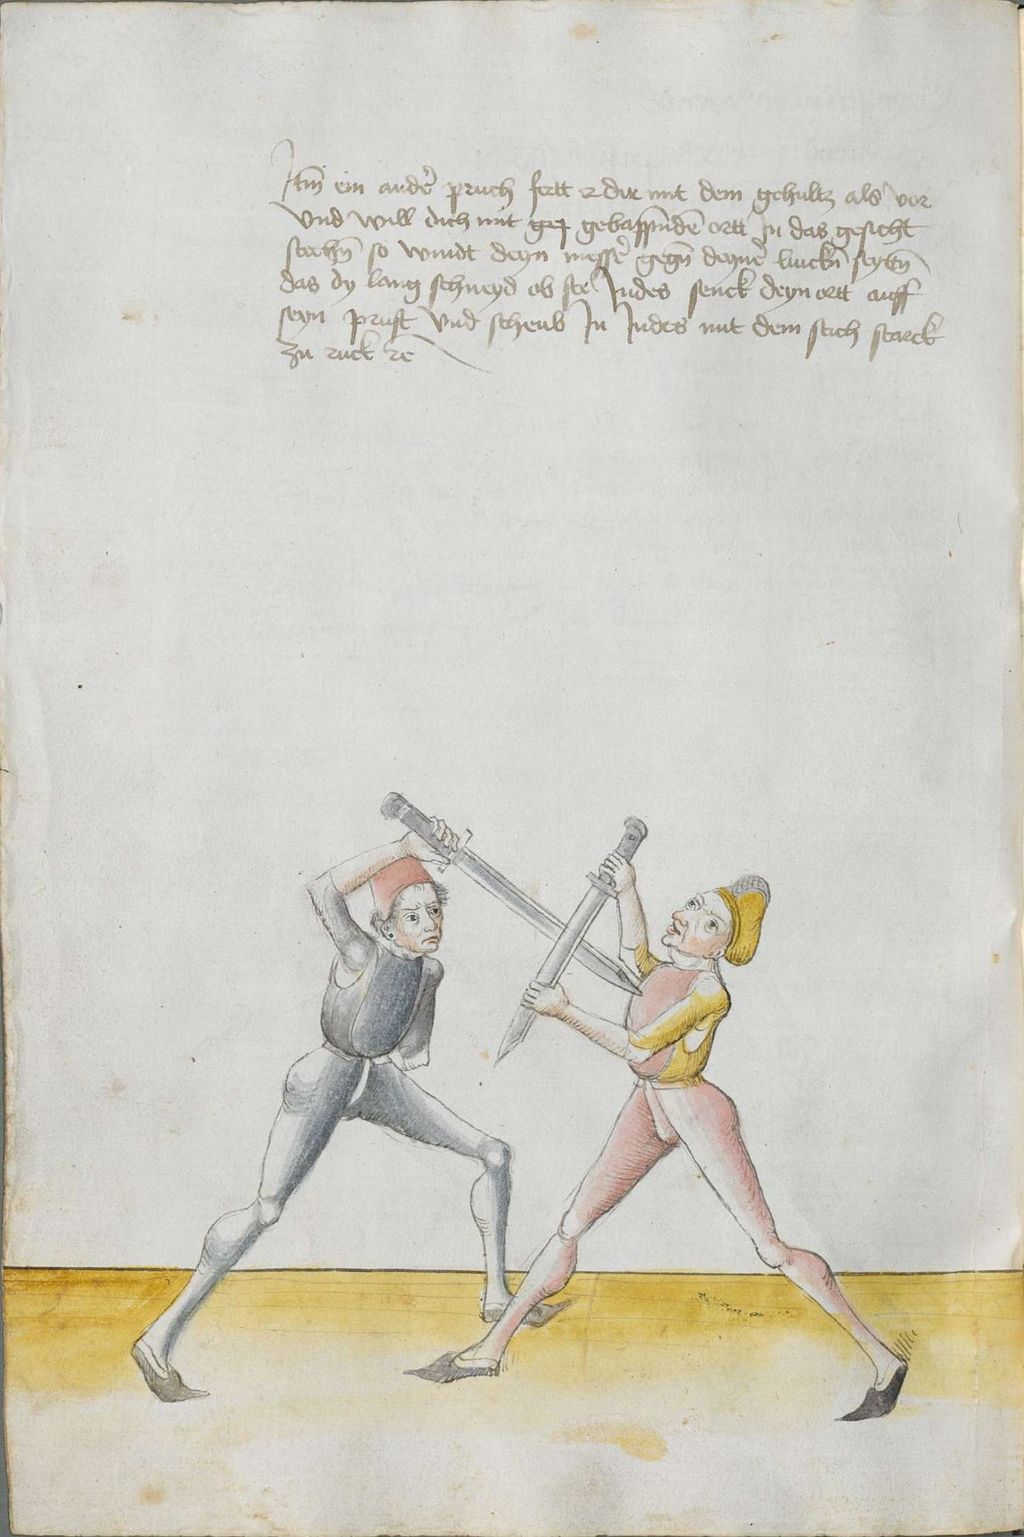 Itm̄ ein ander̄ pruch fertt er dir mit dem gehultz als vor
Vnd will dich mit gej gebappenden̄ ortt In das gesicht
stechn̄ so windt deyn messer̄ gegn̄ deyner̄ linckn̄ seytn̄
das dy lang schneyd ob ste Indes senck deyn ortt auff
seyn prust Vnd scheub In Indes mit dem stich starck
zu ruck